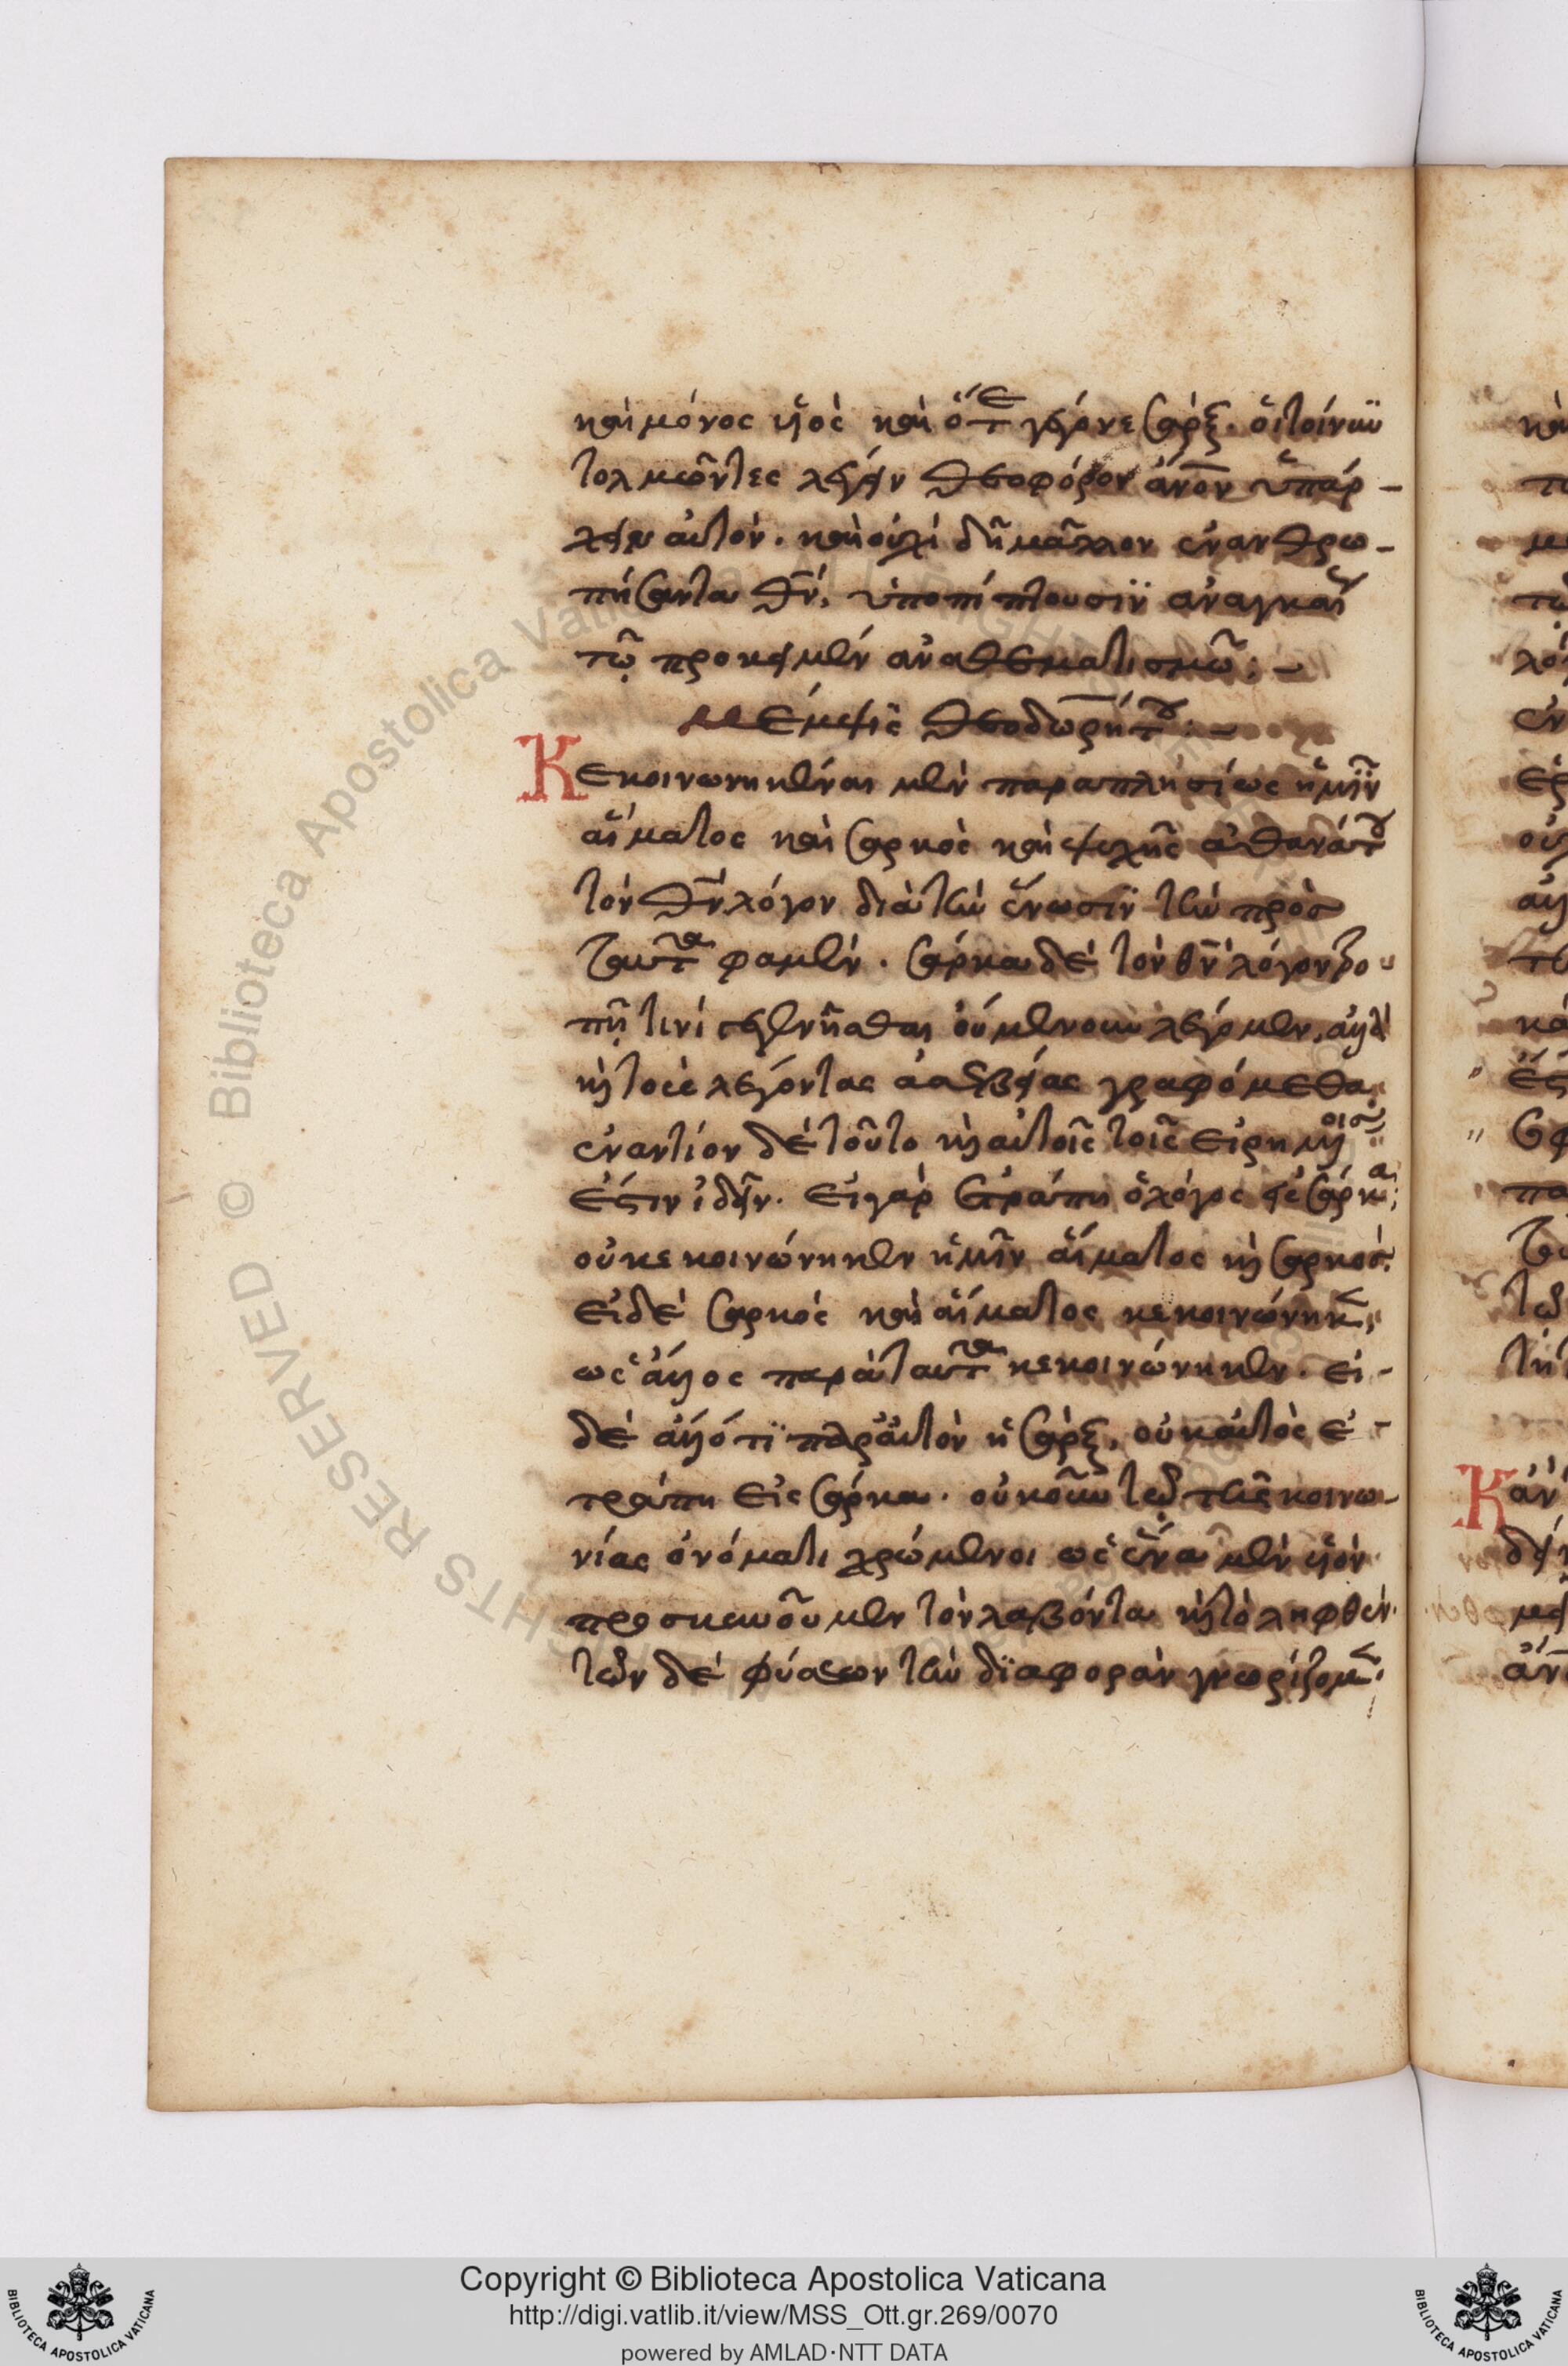 καὶ μόνος υἱὸς καὶ ὅτε γέγονε σάρξ. οἱ τοίνυν
τολμῶντες λέγειν θεοφόρον ἄνον ὑπάρ-
χειν αὐτόν. καὶ οὐχὶ δὴ μᾶλλον ἐνανθρω-
πήσαντα θν, ὑποπίπτουσιν ἀναγκαί
τῷ προκειμένω ἀναθεματισμῶ:-
Μέμψις Θεοδωρήτου:-
Κεκοινωνηκέναι μὲν παραπλησίως ἡμῖν
αἵματος καὶ σαρκὸς καὶ ψυχῆς ἀθανάτου
τὸν θν λόγον διὰ τὴν ἕνωσιν τὴν πρὸς
ταῦτα φαμὲν. σάρκα δὲ τὸν θν λόγον τρο
πῇ τινὶ γεγενῆσθαι οὐ μόνον οὐ λέγομεν, ἀλλὰ
καὶ τοὺς λέγοντας ἀσεβείας γραφόμεθα,
ἐναντίον δὲ τοῦτο καὶ αὐτοῖς τοῖς εἰρημένοις
ἐστιν ἰδεῖν. εἰ γὰρ ἐτράπη ὁ λόγος εἰς σάρκα,
οὐ κεκοινώνηκεν ἡμῖν αἵματος καὶ σαρκός.
εἰ δὲ σαρκὸς καὶ αἵματος κεκοινώνηκε,
ὡς ἄλλος παρὰ ταῦτα κεκοινώνηκεν. εἰ-
δὲ ἄλλό τι παρ' αὐτὸν ἡ σάρξ, οὐκ αὐτὸς ἐ-
τράπη εἰς σάρκα. οὐκοῦν τῷ τῆς κοινω-
νίας ὀνόματι χρώμενοι ὡς ἕνα μὲν υἱὸν
προσκυνοῦμεν τὸν λαβόντα καὶ τὸ ληφθέν.
τῶν δὲ φύσεων τὴν διαφορὰν γνωρίζομεν.
Copyright © Biblioteca Apostolica Vaticana
http://digi.vatlib.it/view/MSS_Ott.gr.269/0070
powered by AMLAD·NTT DATA